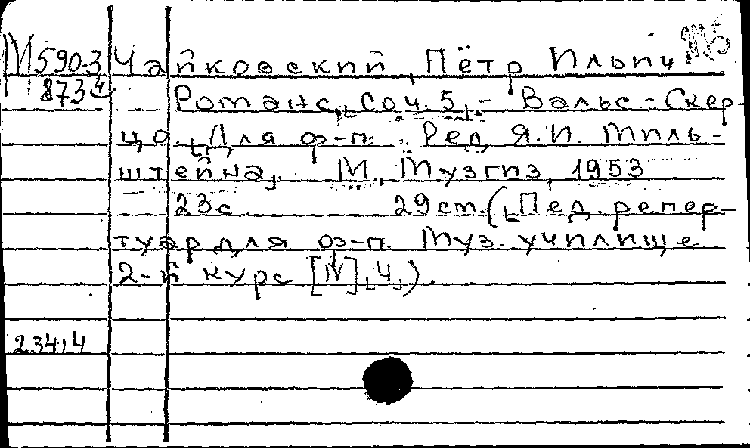 М590-3 Чайковский, Пётр Ильич
873 Романс, Соч. 5, - Вальс-Скер-
цо. Для ф-п. Ред. Я.И. Миль-
штейна, М., Музгиз, 1953
23с 29ст. (Пед. репер-
туар для ф-п. Муз. училище
2-й курс [N], 4,).
2.34,4